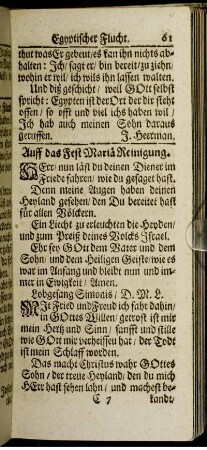 Egyptischer Flucht. 61
thut was Er gebeut/ es kan ihn nichts ab-
halten: Ich/ sagt er/ bin bereit/ zu ziehn/
wohin er wil/ ich wils ihn lassen walten.
Und diß geschicht/ weil GOtt selbst
spricht: Egypten ist der Ort der dir steht
offen/ so offt und viel ichs haben wil/
Ich hab auch meinen Sohn daraus
geruffen. J. Herman.
Auff das Fest Mariä Reinigung.
HErr nun läst du deinen Diener im
Friede fahren/ wie du gesaget hast.
Denn meine Augen haben deinen
Heyland gesehen/ den Du bereitet hast
für allen Völckern.
Ein Liecht zu erleuchten die Heyden/
und zum Preiß deines Volcks Israel.
Ehr sey GOtt dem Vater und dem
Sohn/ und dem Heiligen Geiste/ wie es
war im Anfang und bleibt nun und im-
mer in Ewigkeit/ Amen.
Lobgesang Simonis/ D. M. L.
MIt Fried und Freud ich fahr dahin/
in GOttes Willen/ getrost ist mir
mein Hertz und Sinn/ sanfft und stille
wie GOtt mir verheissen hat/ der Todt
ist mein Schlaff worden.
Das macht Christus wahr GOttes
Sohn/ der treue Heyland/ den du mich
HErr hast sehen lahn/ und machest be-
E 7 kandt/